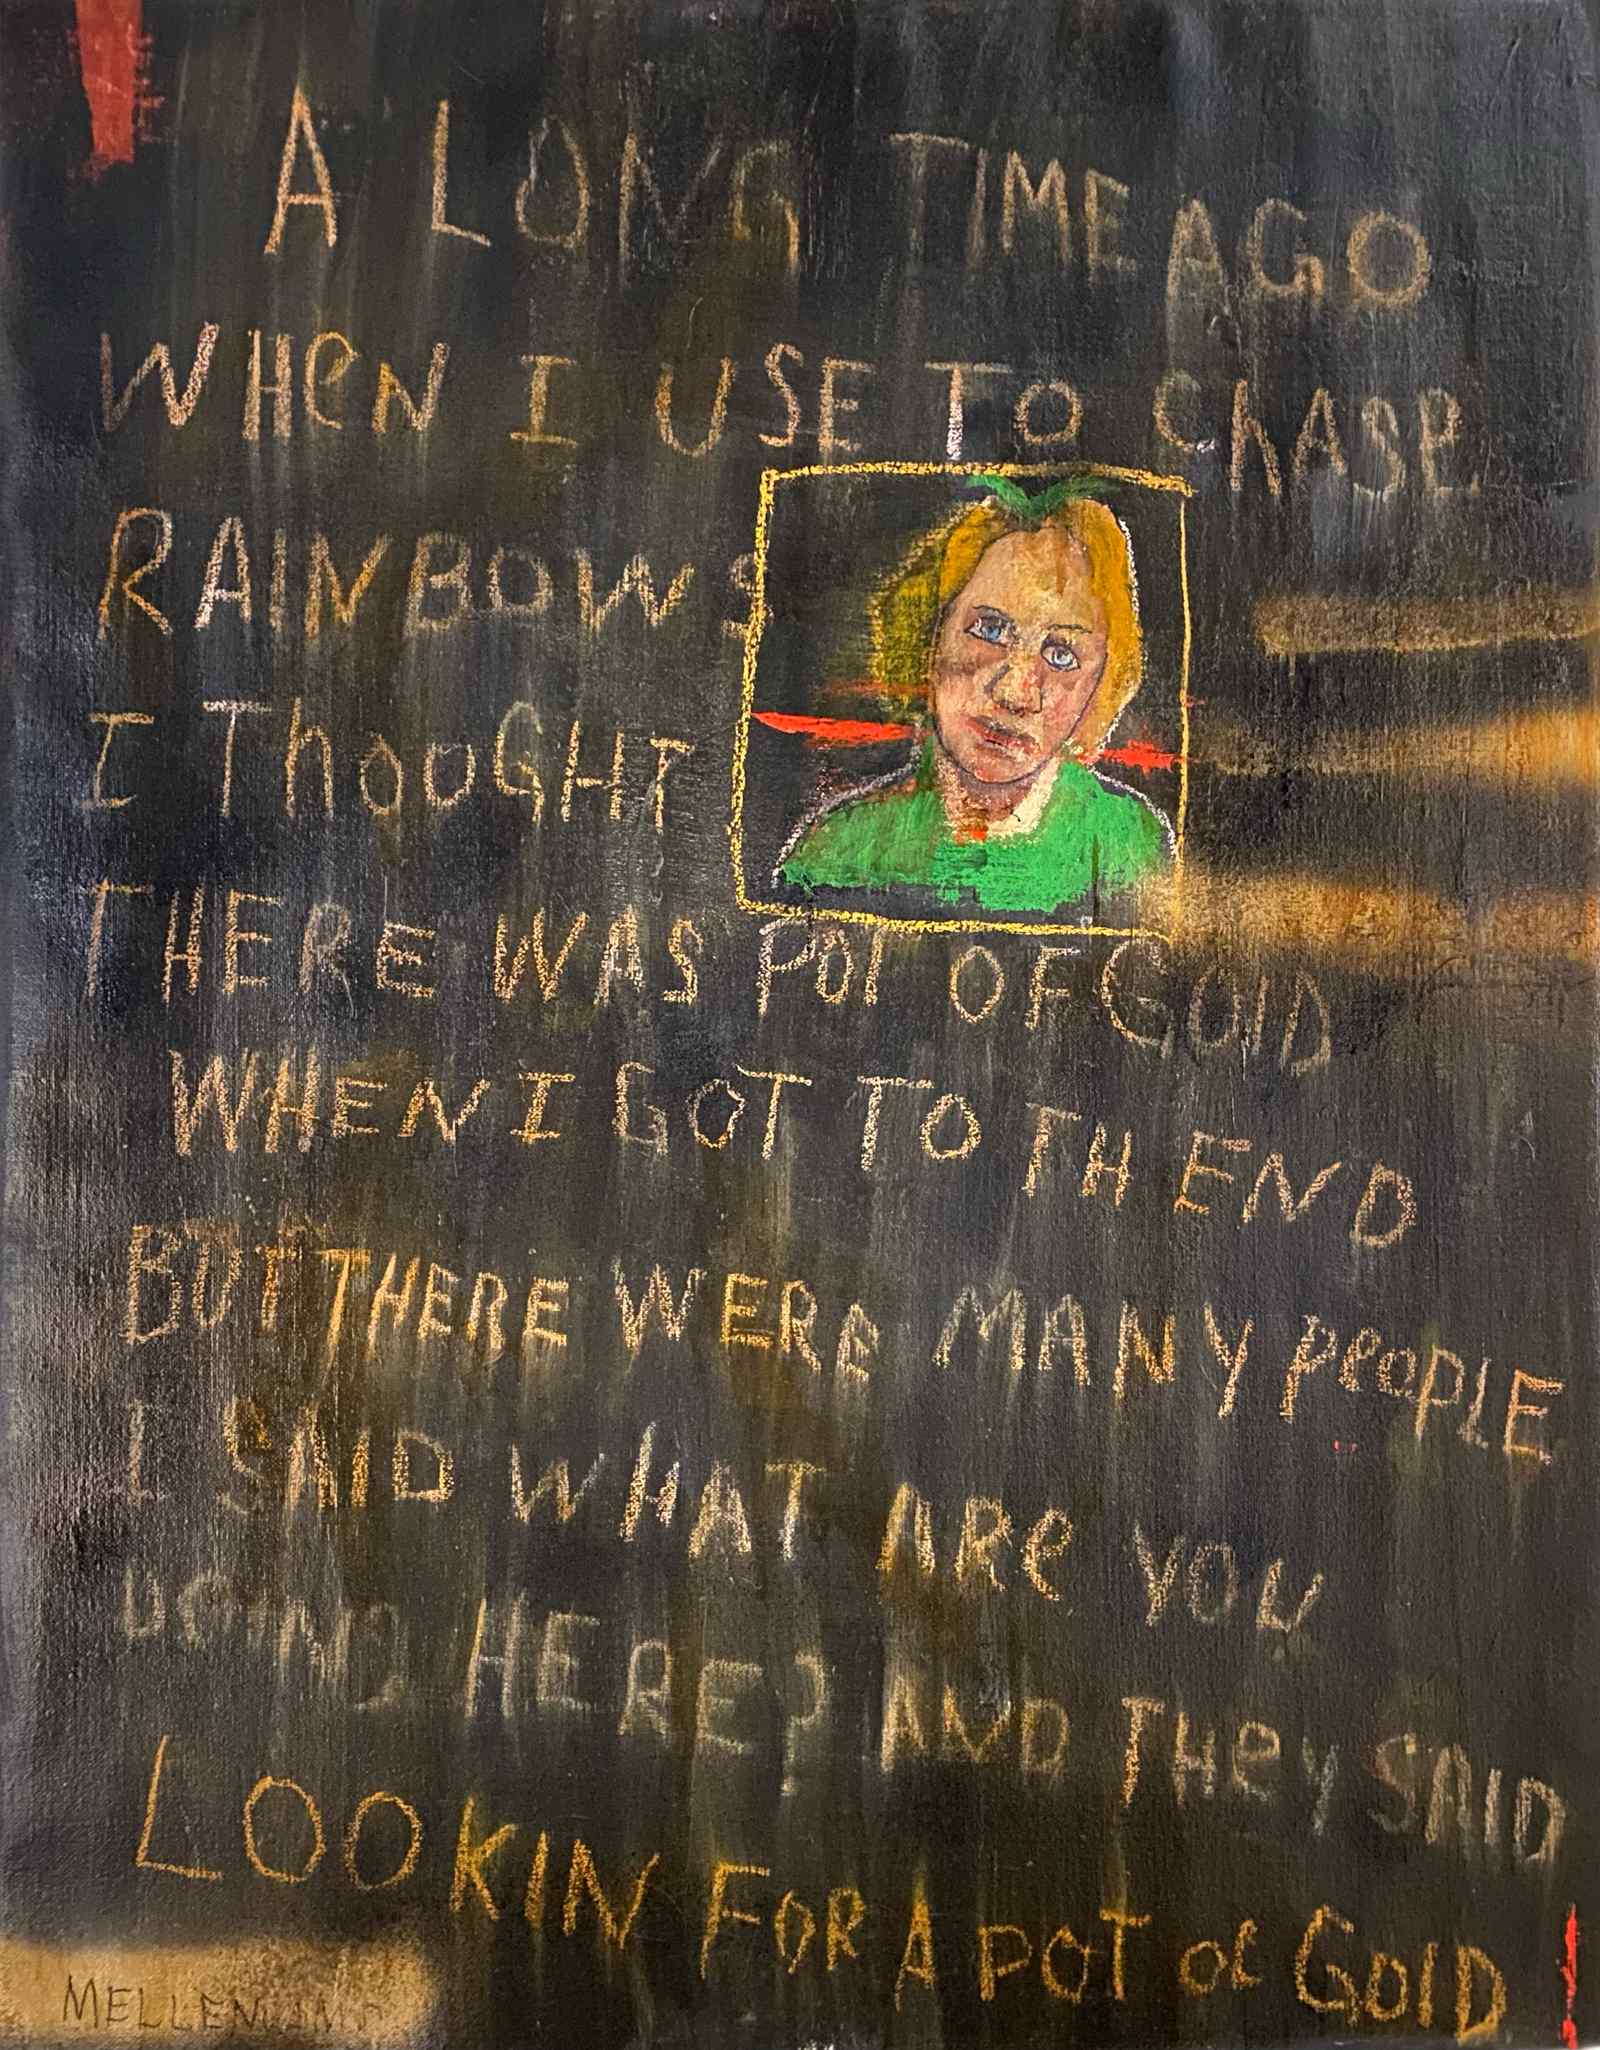 A LONG TIME AGO
WHEN I USE TO ChASE
RAINBOWS
I ThOUGHT
THERE WAS POT OF GOlD
WHEN I GOT TO TH END
BUT THERE WERE MANY PeOPLE
I SAID WHAT ARe YOU
DOING HERE? AND THey SAID
LOOKIN FOR A POT OF GOlD !
MELLENCAMP